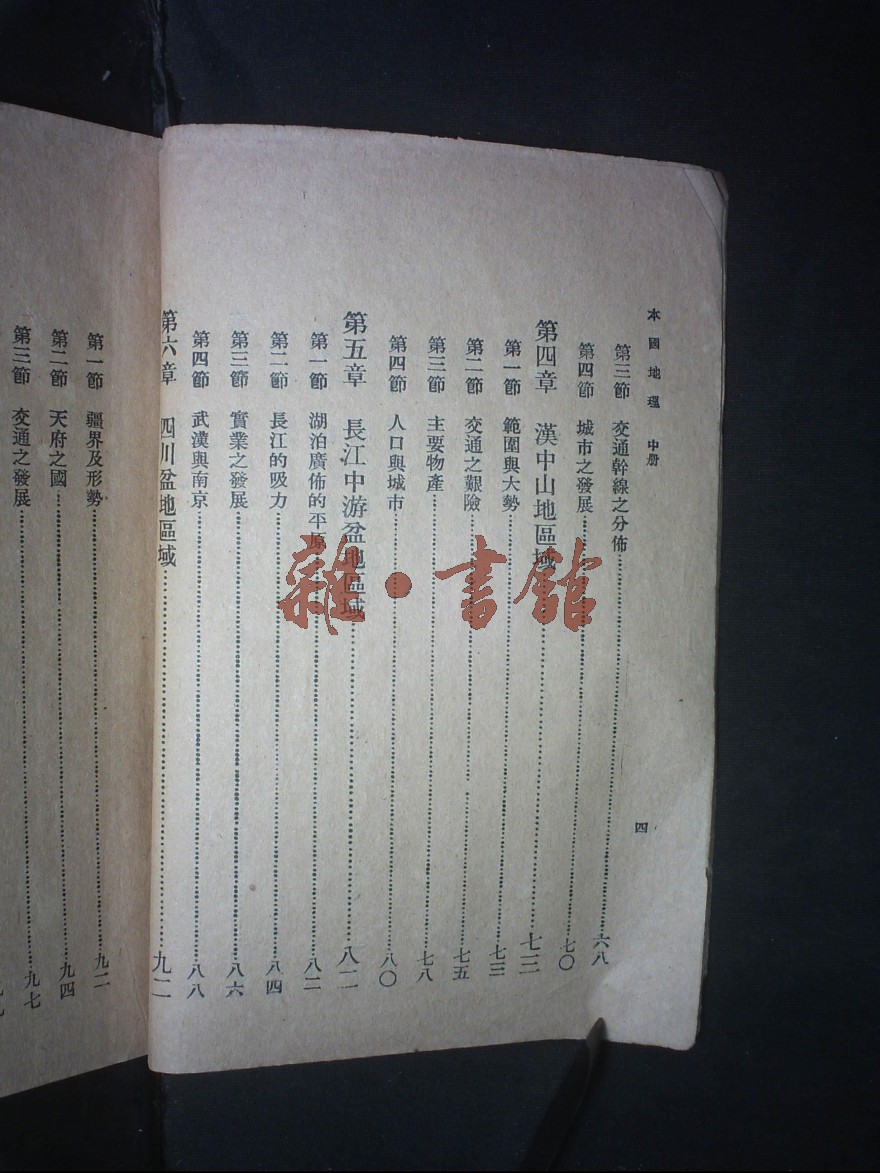 本國地理 中册
第三節 交通幹線之分佈……六八
第四節 城市之發展……七〇
第四章 漢中山地區域……七三
第一節 範圍與大勢……七三
第二節 交通之艱險……七五
第三節 主要物產……七八
第四節 人口與城市……八〇
第五章 長江中游盆地區域……八二
第一節 湖泊廣佈的平原……八二
第二節 長江的吸力……八四
第三節 實業之發展……八六
第四節 武漢與南京……八八
第六章 四川盆地區域……九二
四
第一節 疆界及形勢……九二
第二節 天府之國……九四
第三節 交通之發展……九七
雜·書館